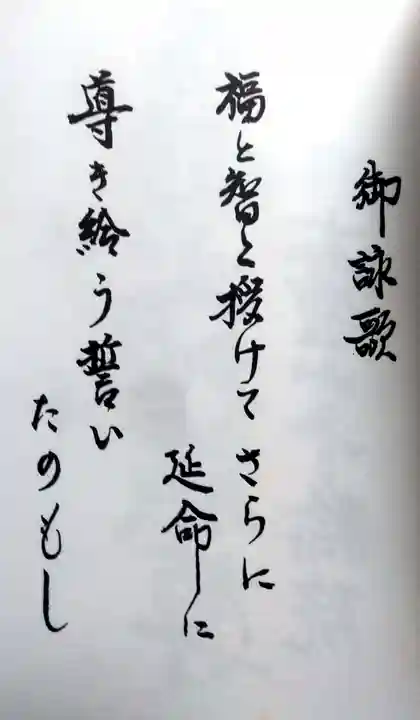 御詠歌
福と智と授けて さらに
延命に
導き給う誓い
たのもし